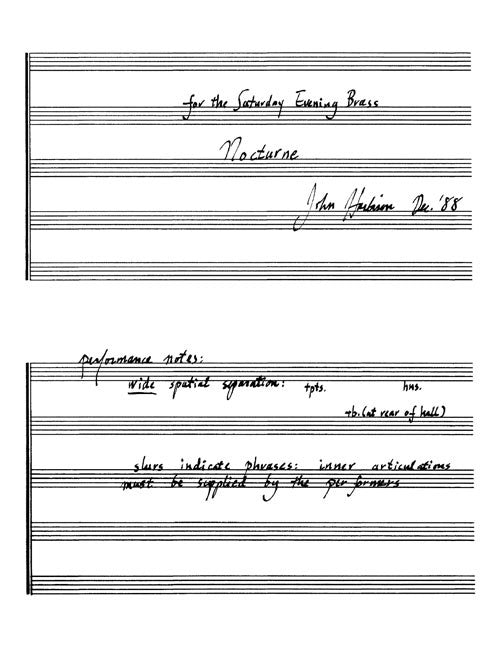 for the Saturday Evening Brass
Nocturne
John Harbison Dec. '88
performance notes:
wide spatial separation: tpts. hns.
tb. (at rear of hall)
slurs indicate phrases: inner articulations
must be supplied by the performers